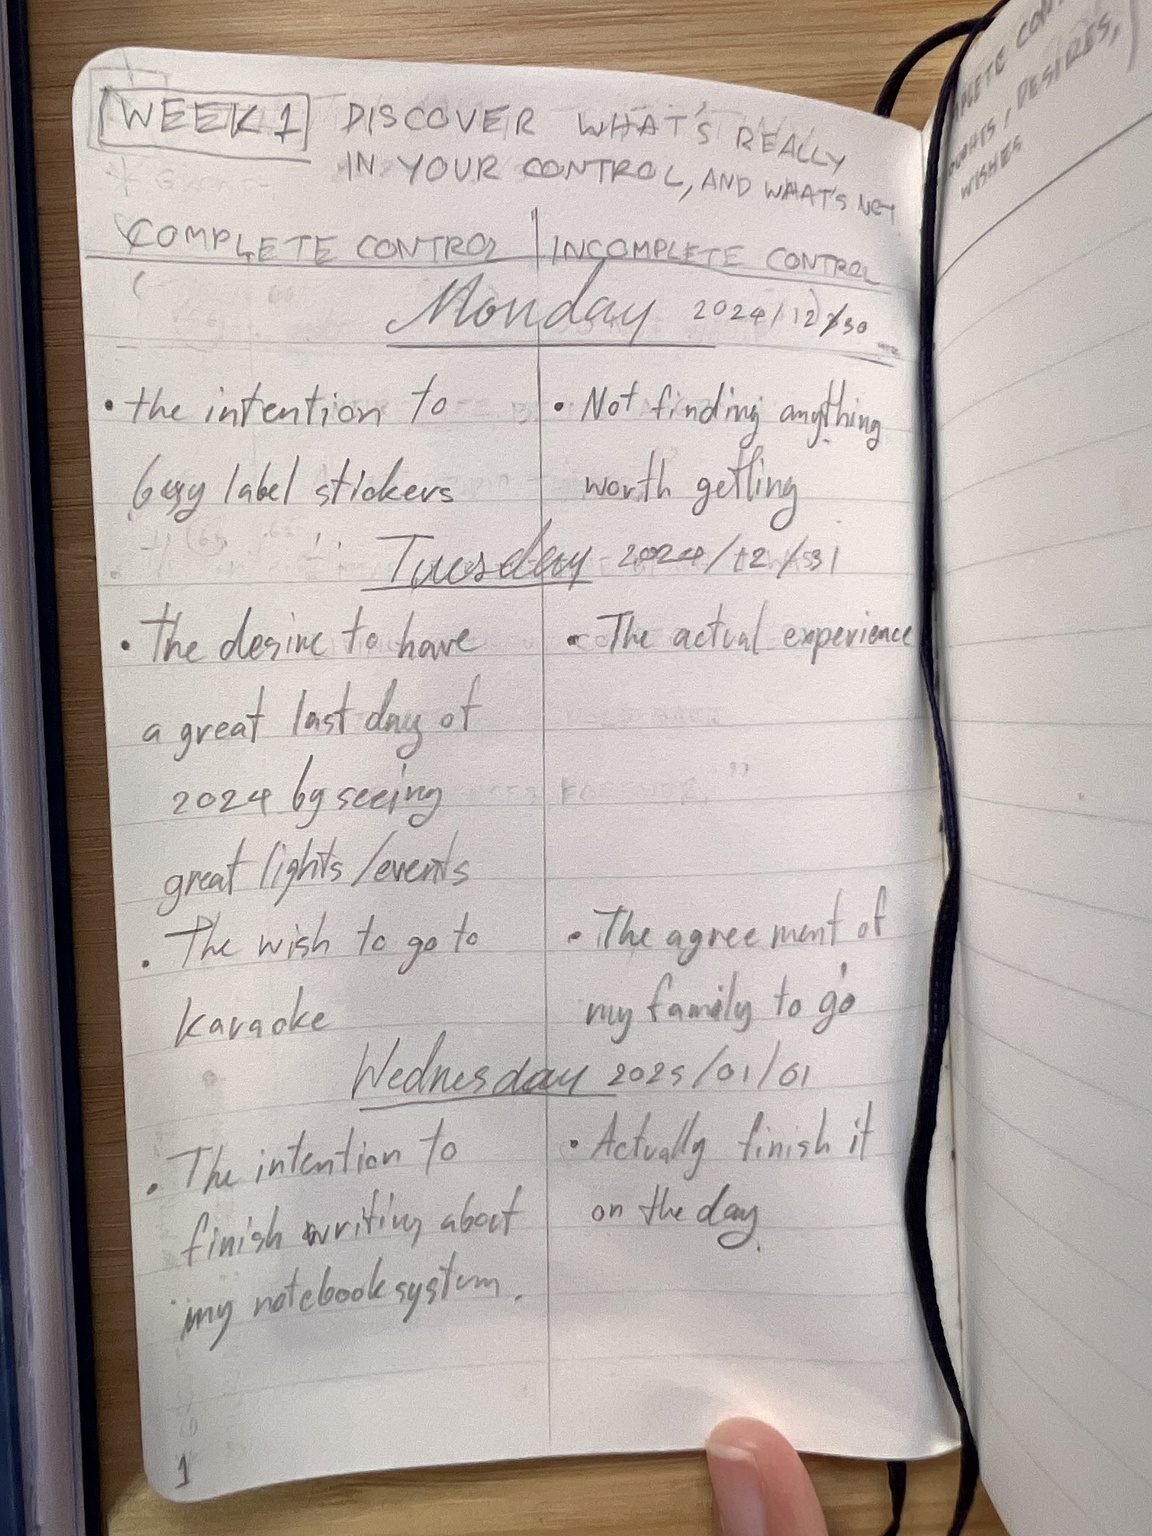 WEEK 1 DISCOVER WHAT'S REALLY
IN YOUR CONTROL, AND WHAT'S NOT
COMPLETE CONTROL INCOMPLETE CONTROL
Monday 2024/12/30
• the intention to
buy label stickers
• Not finding anything
worth getting
Tuesday 2024/12/31
• The desire to have
a great last day of
2024 by seeing
great lights/events
• The actual experience
• The wish to go to
karaoke
• The agreement of
my family to go
Wednesday 2025/01/01
• The intention to
finish writing about
my notebook system.
• Actually finish it
on the day.
1
DESIRES,
WISHES